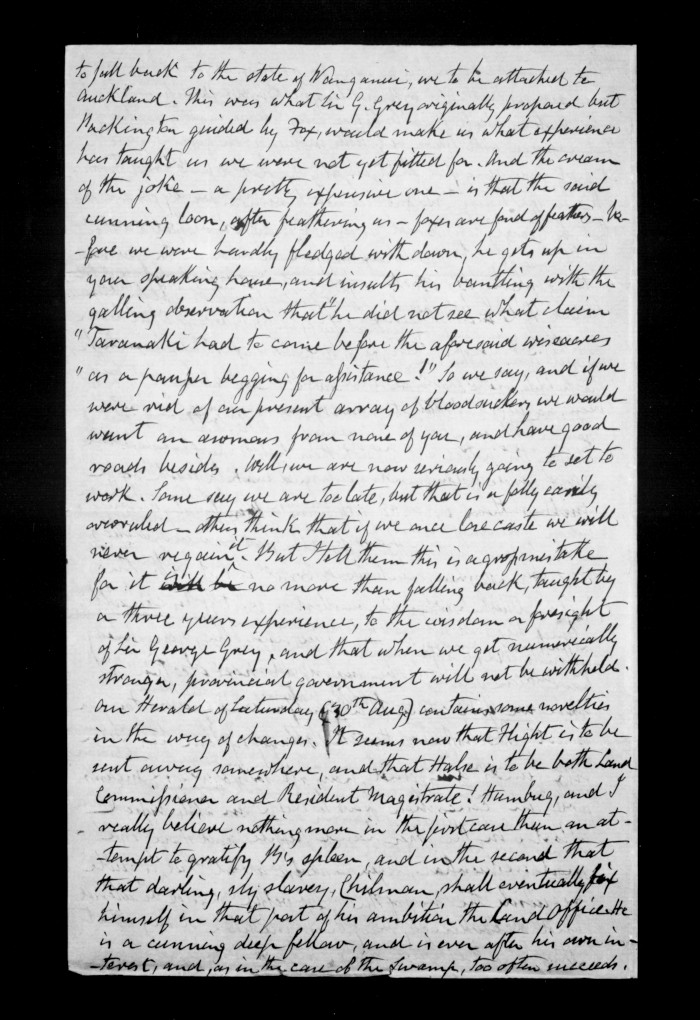 to fall back to the state of Wanganui, we to be attached to
Auckland. This was what Sir G. Grey originally proposed but
Packington guided by Fox, would make us what experience
has taught us we were not yet fitted for. And the cream
of the joke - a pretty expensive one - is that the said
cunning loon, after feathering us - foxes are fond of feathers - be-
-fore we were hardly fledged with down, he gets up in
your speaking house, and insults his bantling with the
galling observation that "he did not see what claim
"Taranaki had to come before the aforesaid wiseacres
"as a pauper begging for assistance!" So we say, and if we
were rid of our present array of bloodsuckers, we would
want an asomous from none of you, and have good
roads besides. Well, we are now seriously going to set to
work. Some say we are too late, but that is a folly easily
overruled - others think that if we once lose caste we will
never regain it. But I tell them this is a gross mistake
for it is no more than falling back, taught by
a three years experience, to the wisdom & foresight
of Sir George Grey, and that when we get numerically
stronger, provincial government will not be withheld.
Our Herald of Saturday (30th Aug) contains some novelties
in the way of changes. It seems now that Flight is to be
sent away somewhere, and that Halse is to be both Land
Commissioner and Resident Magistrate! Humbug, and I
really believe nothing more in the first case than an at-
-tempt to gratify B's spleen, and in the second that
that darling, sly slavery, Chilman, shall eventually fix
himself in that part of his ambition the Land Office. He
is a cunning deep fellow, and is ever after his own in-
-terest, and, as in the case of the Swamp, too often succeeds.